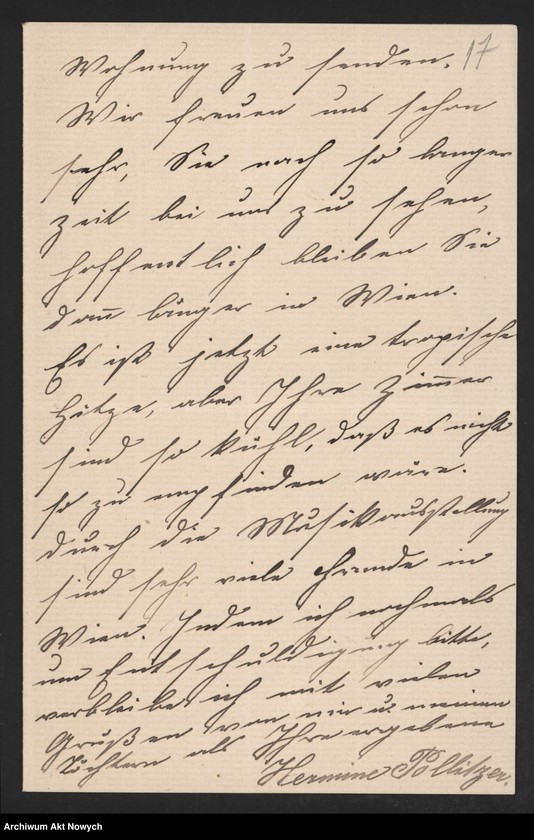 17
Wohnung zu senden.
Wir freuen uns schon
sehr, Sie nach so langer
Zeit bei uns zu sehen,
hoffentlich bleiben Sie
dan̄ länger in Wien.
Es ist jetzt eine tropische
Hitze, aber Ihre Zim̄er
sind so kühl, daß es nicht
so zu empfinden wäre.
Durch die Musikausstellung
sind sehr viele Fremde in
Wien. Indem ich nochmals
um Entschuldigung bitte,
verbleibe ich mit vielen
Grüßen von mir u. meinen
Töchtern als Ihre ergebene
Hermine Pollitzer.
Archiwum Akt Nowych